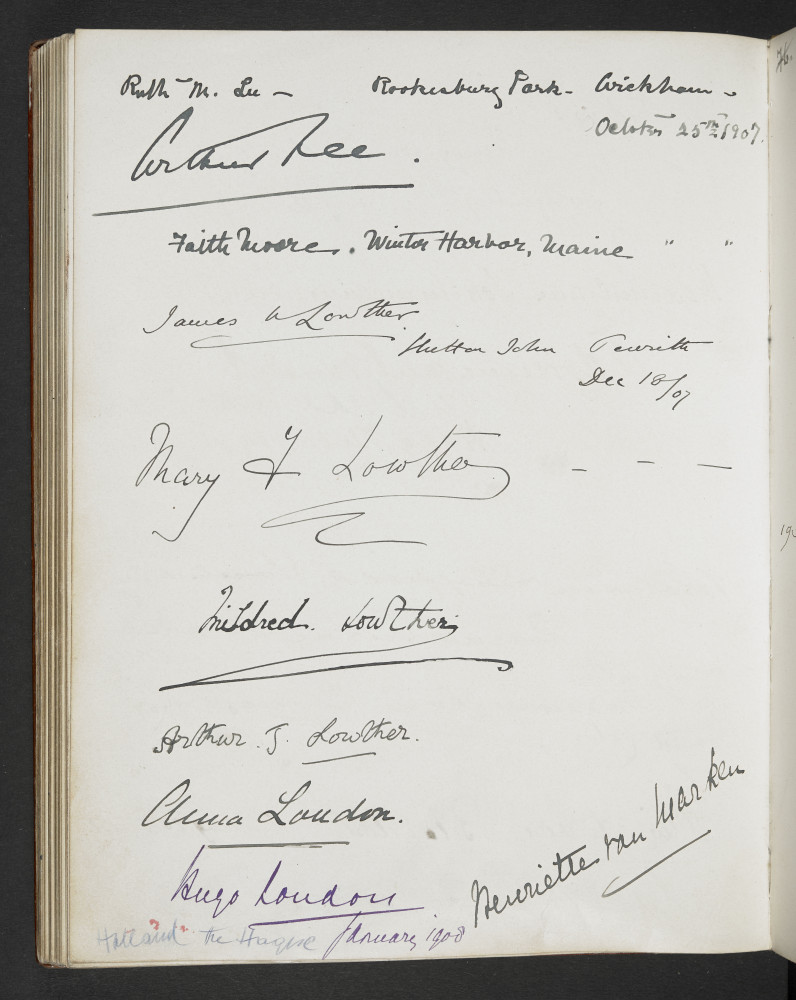 Ruth M. Lee - Rookesbury Park - Wickham -
October 25th 1907.
Arthur Lee.
Faith Moore. Winter Harbor, Maine " "
James W Lowther
Hutton John Penrith
Dec 18/07
Mary F Lowther - - -
Mildred. Lowther
Arthur. J. Lowther.
Anna Loudon.
Henriette van Marken
Hugo Loudon
Holland the Hague January 1908